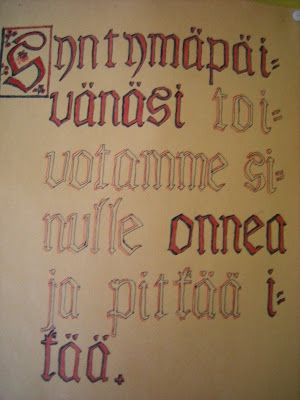 Syntymäpäi-
vänäsi toi-
votamme si-
nulle onnea
ja pittää i-
tää.